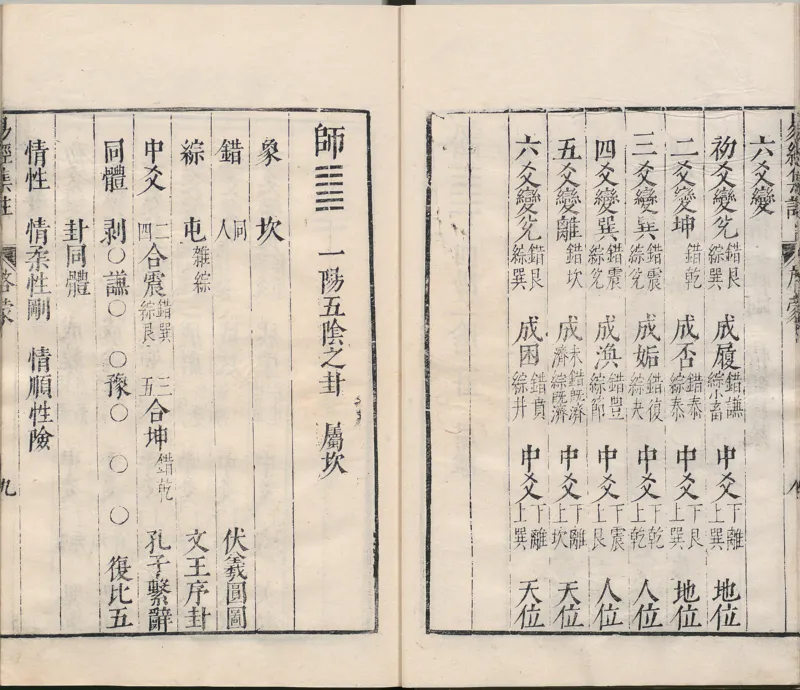 六爻變
初爻變兌錯艮綜巽 成履錯謙綜小畜 中爻下離上巽 地位
二爻變坤錯乾 成否錯泰綜泰 中爻下艮上巽 地位
三爻變巽錯震綜兌 成姤錯復綜夬 中爻下乾上乾 人位
四爻變巽錯震綜兌 成渙錯豐綜節 中爻下震上艮 人位
五爻變離錯坎 成未濟錯既濟綜既濟 中爻下離上坎 天位
六爻變兌錯艮綜巽 成困錯賁綜井 中爻下離上巽 天位
師 ䷆ 一陽五陰之卦 屬坎
象 坎
錯 同人 伏羲圓圖
綜 屯雜綜 文王序卦
中爻 二四合震錯巽綜艮 三五合坤錯乾 孔子繫辭
同體 剝○謙○ ○豫○ ○ ○ 復比五
卦同體
情性 情柔性剛 情順性險
易經集註 啓蒙 九